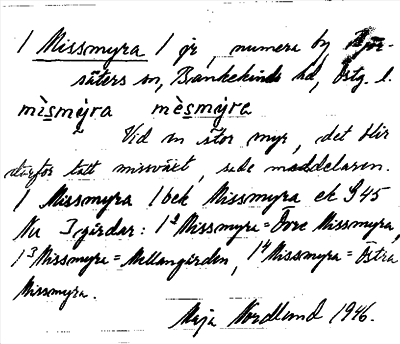 1 Missmyra 1 gr, numera by Björ-
säters sn, Bankekinds hd, Östg. l.
mìsmýra mèsmýra
Vid en stor myr, det blir
därför lätt missväxt, sade meddelaren.
1 Missmyra 1 bek Missmyra ek S 45
Nu 3 gårdar: 1² Missmyra = Övre Missmyra,
1³ Missmyra = Mellangården, 1⁴ Missmyra = Östra
Missmyra.
Maja Nordlund 1946.